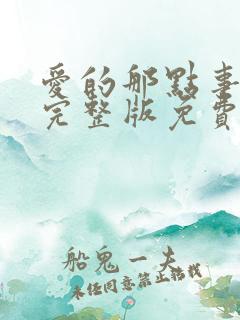 愛的那點事
完整版免費
船鬼一夫
未经同意禁止转载